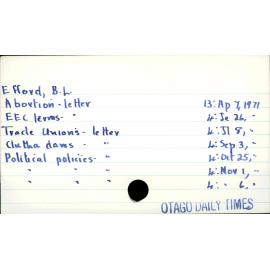 Efford, B.L.
Abortion - letter 13: Ap 7, 1971
EEC terms - " 4: Je 26, "
Trade Unions - letter 4: Jl 8, "
Clutha dams - " 4: Sep 3, "
Political policies - " 4: Oct 25, "
" " " 4: Nov 1, "
" " " 4: " 6, "
OTAGO DAILY TIMES